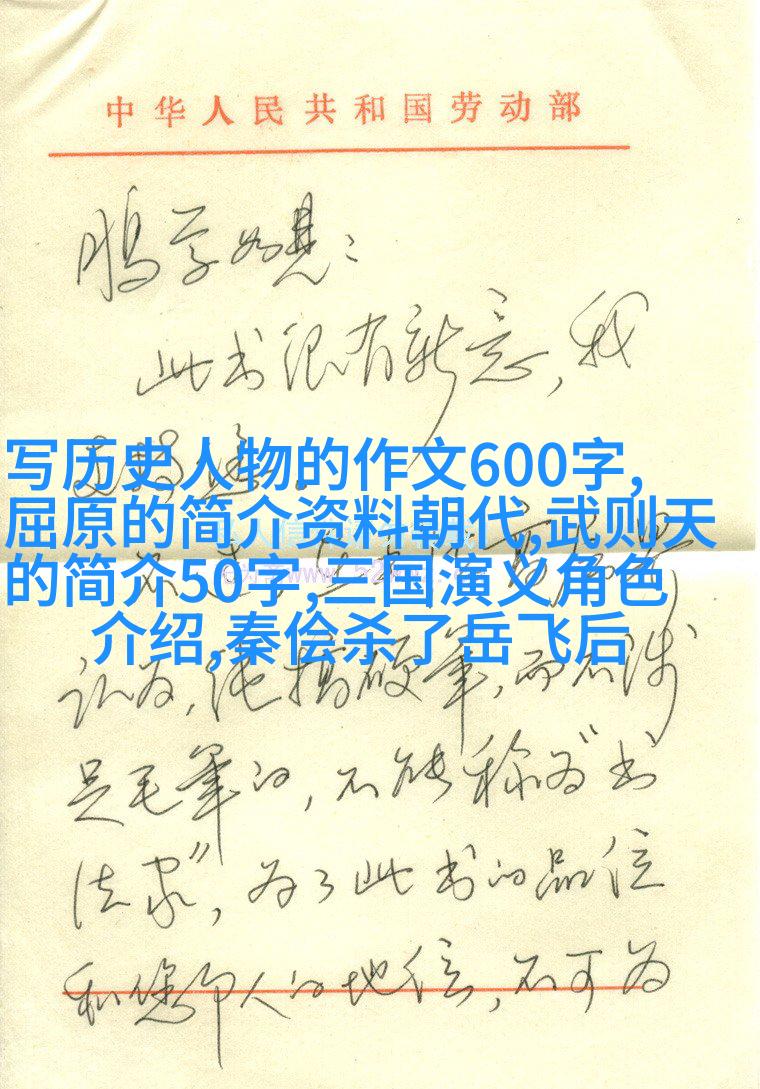 中华人民共和国劳动部
鹏学如晤：
此书很有新意，我
写历史人物的作文600字,
屈原的简介资料朝代,武则天
的简介50字,三国演义角色
介绍,秦侩杀了岳飞后
认为，纯搞硬筆，而不涉
足毛筆的，不能称为“书
法家”，为了此书的品位
和您个人的地位，不可为